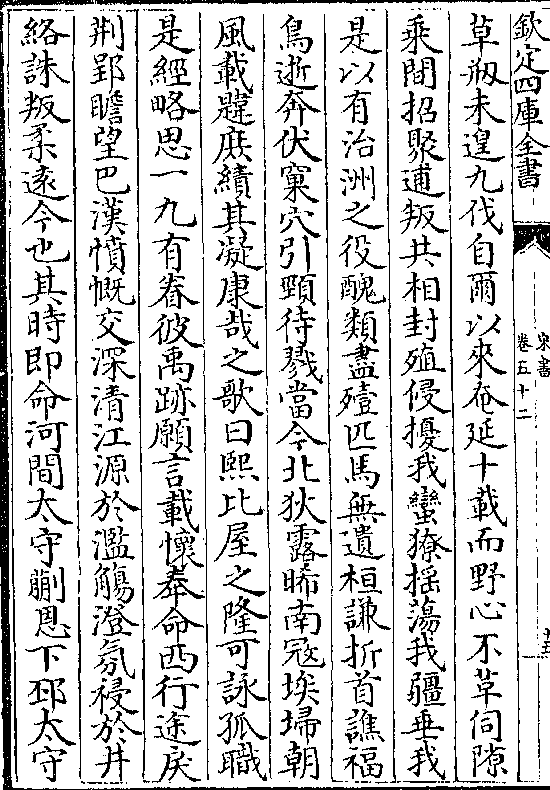 欽定四庫全書
宋書
卷五十二
草剏未遑九伐自爾以來奄延十載而野心不草伺隙
乗間招聚逋叛共相封殖侵擾我蠻獠揺蕩我疆垂我
是以有治洲之役醜類盡殪匹馬無遺桓謙折首譙福
鳥逝奔伏窠穴引頸待戮當今北狄露晞南冦埃埽朝
風載韙庶績其凝康哉之歌曰熙比屋之隆可詠孤職
是經略思一九有眷彼禹跡願言載懷奉命西行途戾
荆郢瞻望巴漢憤慨交深清江源於濫觴澄氛祲於井
絡誅叛柔逺今也其時即命河間太守蒯恩下邳太守